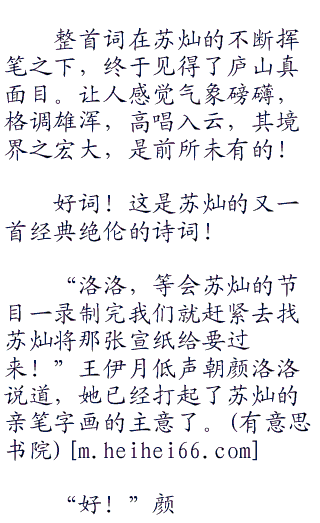 整首词在苏灿的不断挥
笔之下，终于见得了庐山真
面目。让人感觉气象磅礴，
格调雄浑，高唱入云，其境
界之宏大，是前所未有的！
好词！这是苏灿的又一
首经典绝伦的诗词！
“洛洛，等会苏灿的节
目一录制完我们就赶紧去找
苏灿将那张宣纸给要过
来！”王伊月低声朝颜洛洛
说道，她已经打起了苏灿的
亲笔字画的主意了。(有意思
书院)[m.heihei66.com]
“好！”颜